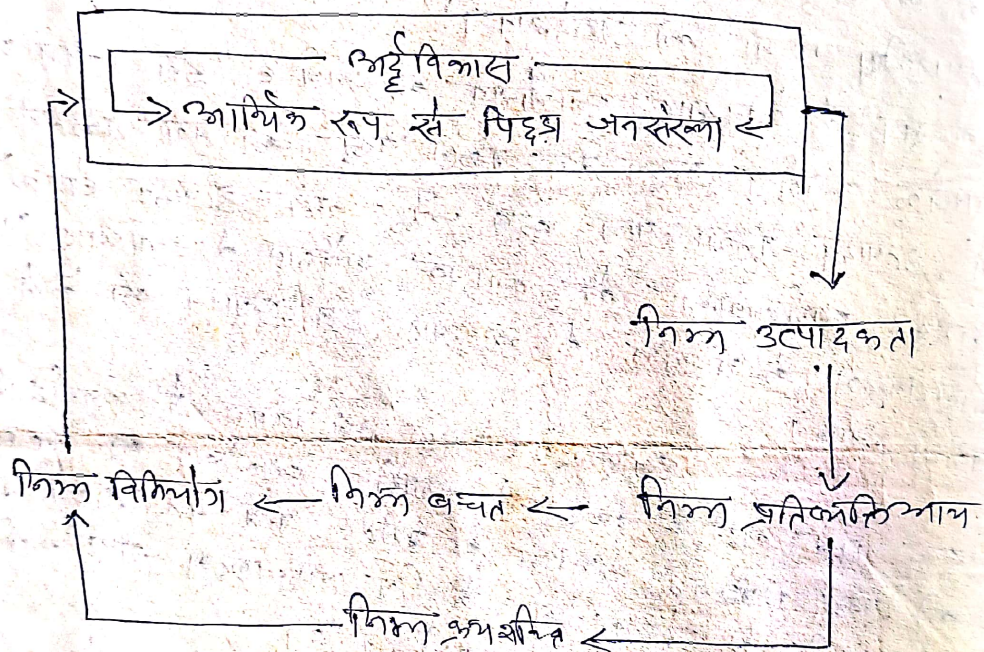 अर्द्धविकास
आर्थिक रूप से पिछड़ा जनसंख्या
निम्न उत्पादकता
निम्न विनियोग ← निम्न बचत ← निम्न प्रतिव्यक्ति आय
निम्न क्रय शक्ति